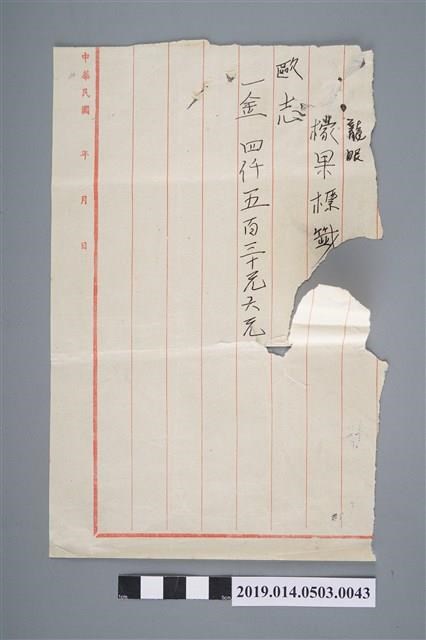 龍眼
檨果標籤
歐志
一金 四仟五百三十元大元
中華民國 年 月 日
2019.014.0503.0043